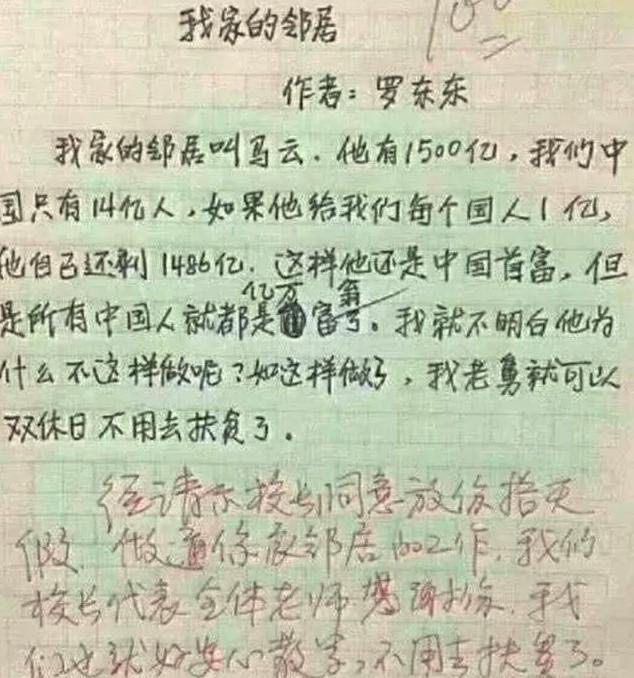 我家的邻居
100
作者：罗东东
我家的邻居叫马云．他有1500亿，我们中
国只有14亿人，如果他给我们每个国人1亿，
他自己还剩1486亿．这样他还是中国首富，但
亿万 翁
是所有中国人就都是富了。我就不明白他为
什么不这样做呢？如这样做了，我老舅就可以
双休日不用去扶贫了。
经请示校长同意放你拾天
假，做通你家邻居的工作，我们
校长代表全体老师感谢你．我
们也就好安心教学，不用去扶贫了。